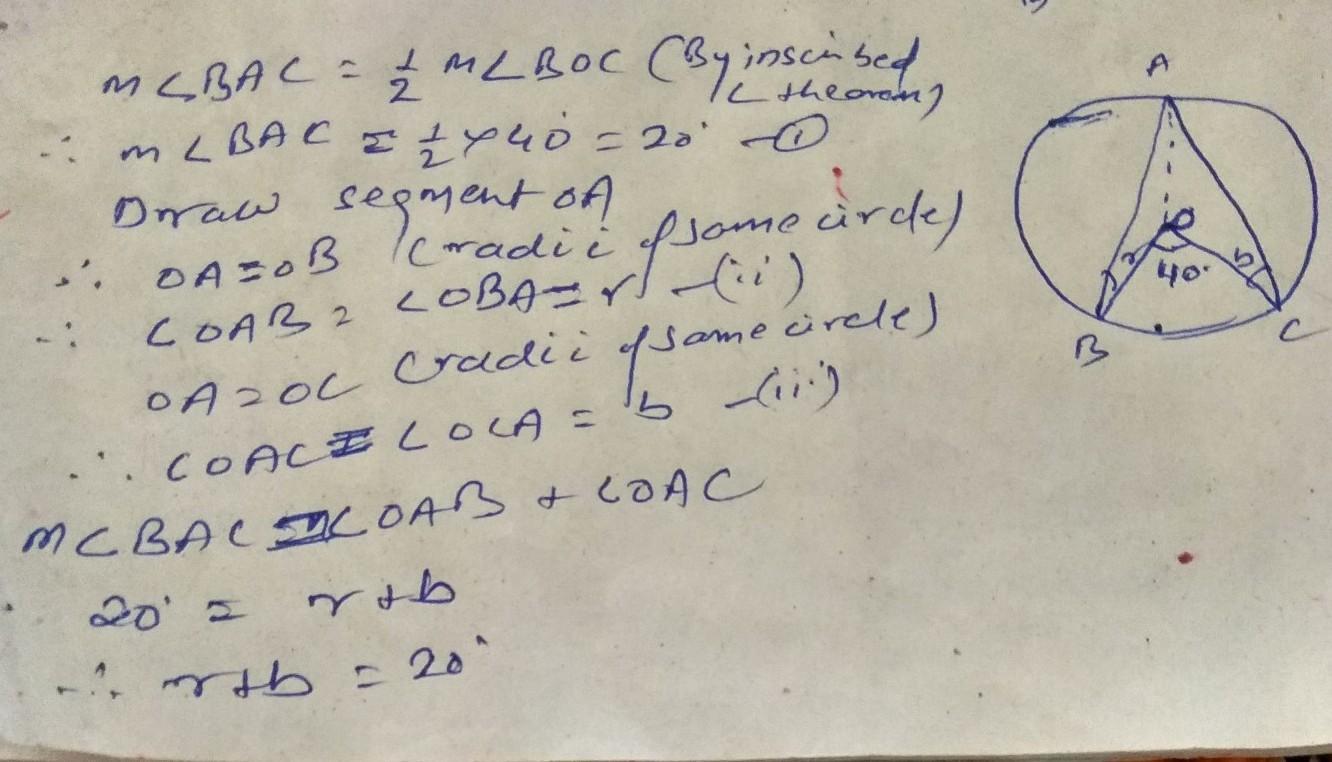 m∠BAC = 1/2 m∠BOC (By inscribed
∠ theorem)
∴ m∠BAC = 1/2 × 40° = 20° —①
Draw segment OA
∴ OA = OB (radii of same circle)
∴ ∠OAB = ∠OBA = r —(ii)
OA = OC (radii of same circle)
∴ ∠OAC = ∠OCA = b —(iii)
m∠BAC = ∠OAB + ∠OAC
20° = r + b
∴ r + b = 20°
A
O
r
b
40°
B
C